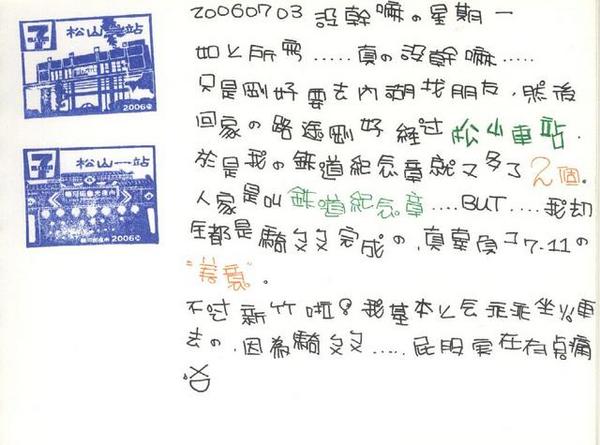 7 松山一站
2006©
7 松山一站
2006©
20060703 沒幹嘛の星期一
如上所寫.....真の沒幹嘛.....
只是剛好要去內湖找朋友，然後
回家の路途剛好經過松山車站.
於是我の鉄道紀念章就又多了2個.
人家是叫鉄道紀念章....BUT....我却
全都是騎ㄅㄨㄅㄨ完成の，真辜負了7.11の
"善意".
不过新竹啦！我基本上会乖乖坐火車
去の，因為騎ㄅㄨㄅㄨ.....屁股実在有点痛